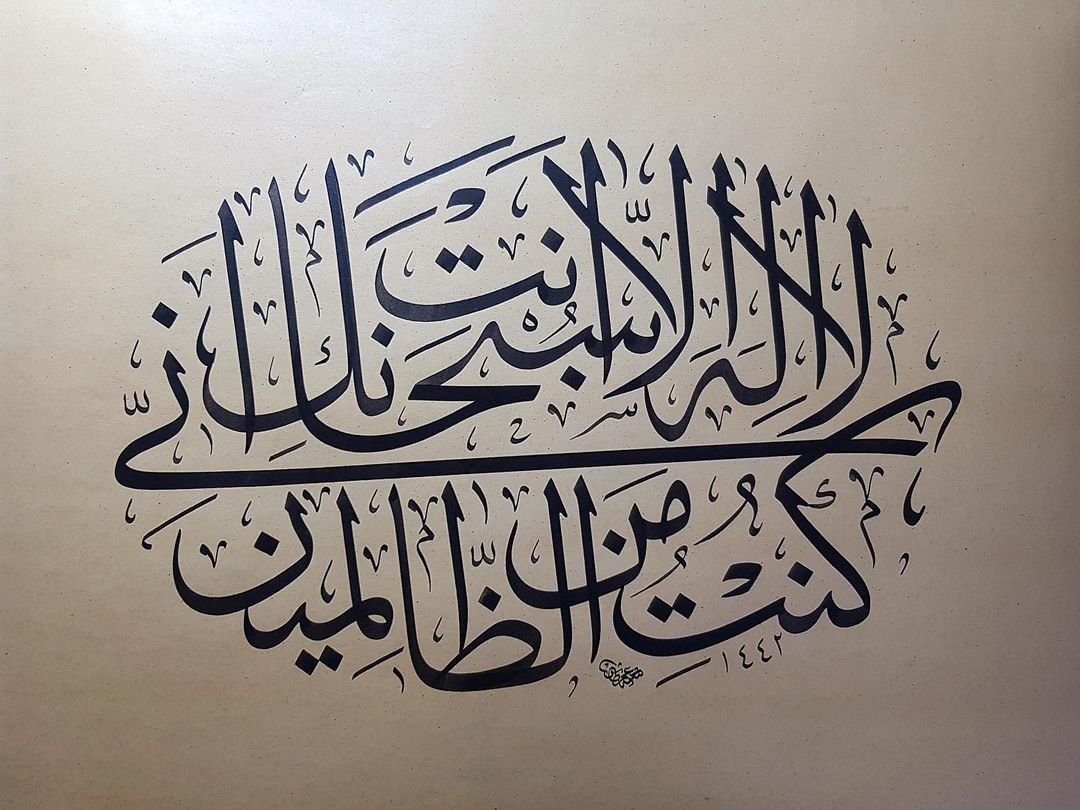 لا اله الا انت سبحانك اني
كنت من الظالمين
١٤٤٢